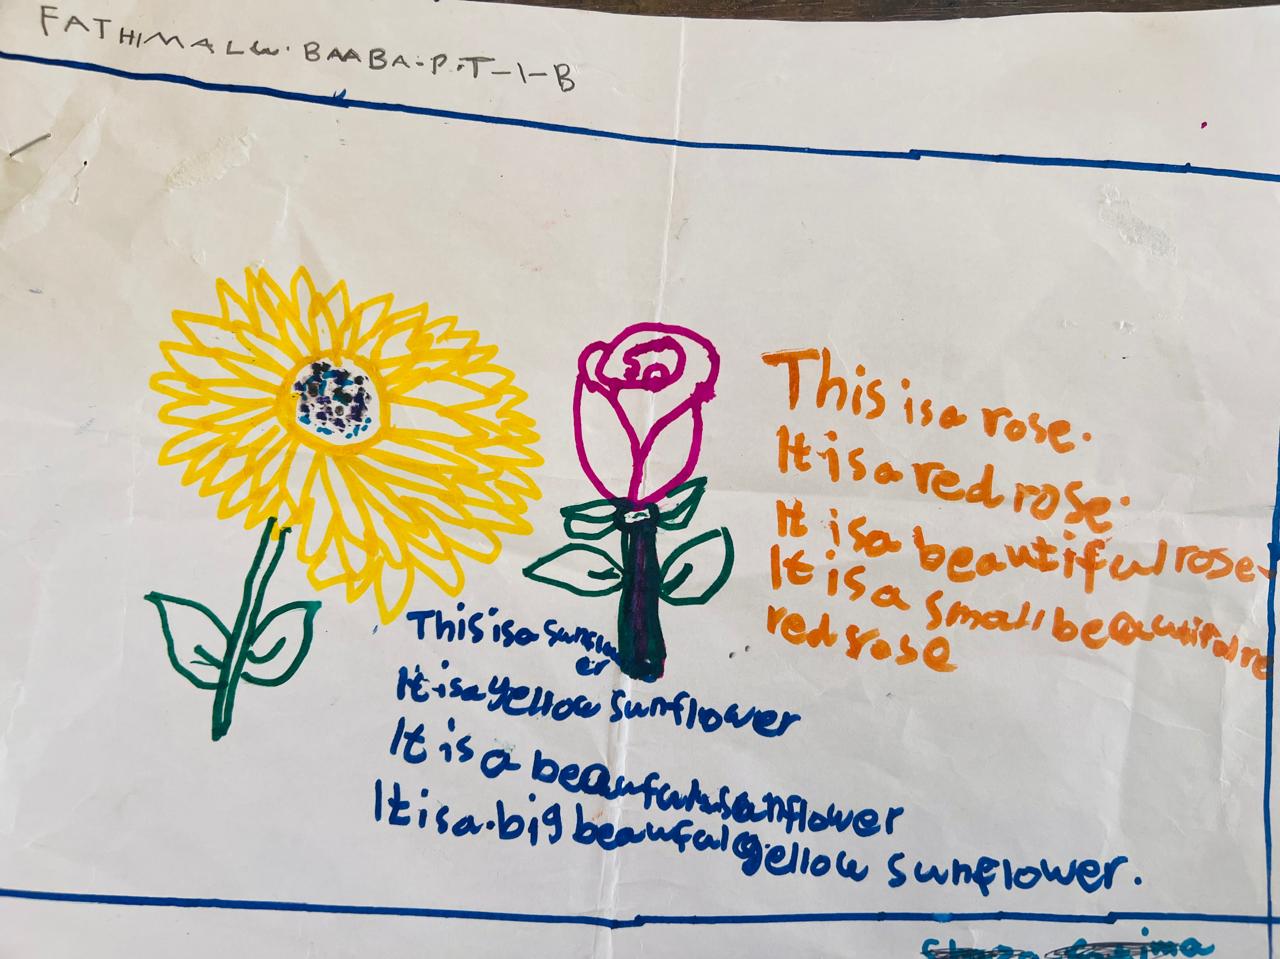 FATHIMALW. BAABA.P.T-1-B
This is a rose.
It is a red rose.
It is a beautiful rose.
It is a small beautiful re
red rose
This is a sunflow
er
It is a yellow sunflower
It is a beaufulsunflower
It is a.big beauful yellow sunflower.